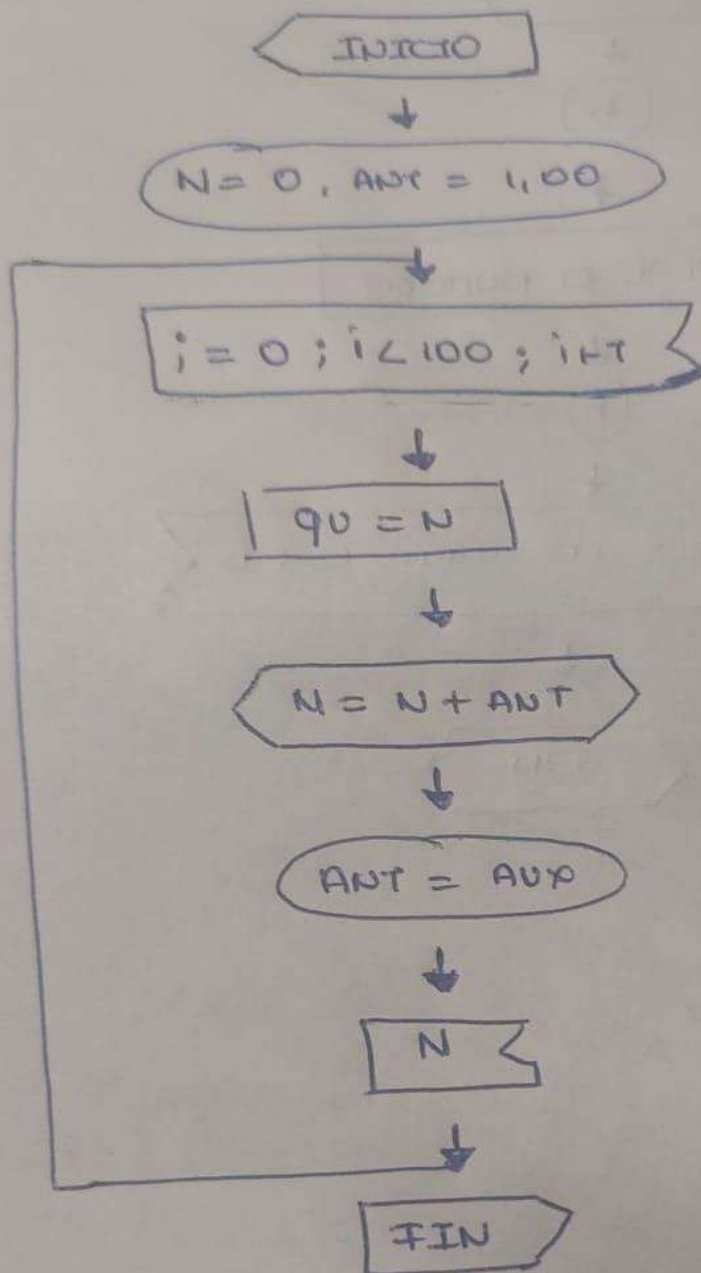 INICIO
N = 0, ANT = 1,00
i = 0 ; i < 100 ; i++
qu = N
N = N + ANT
ANT = AUX
N
FIN